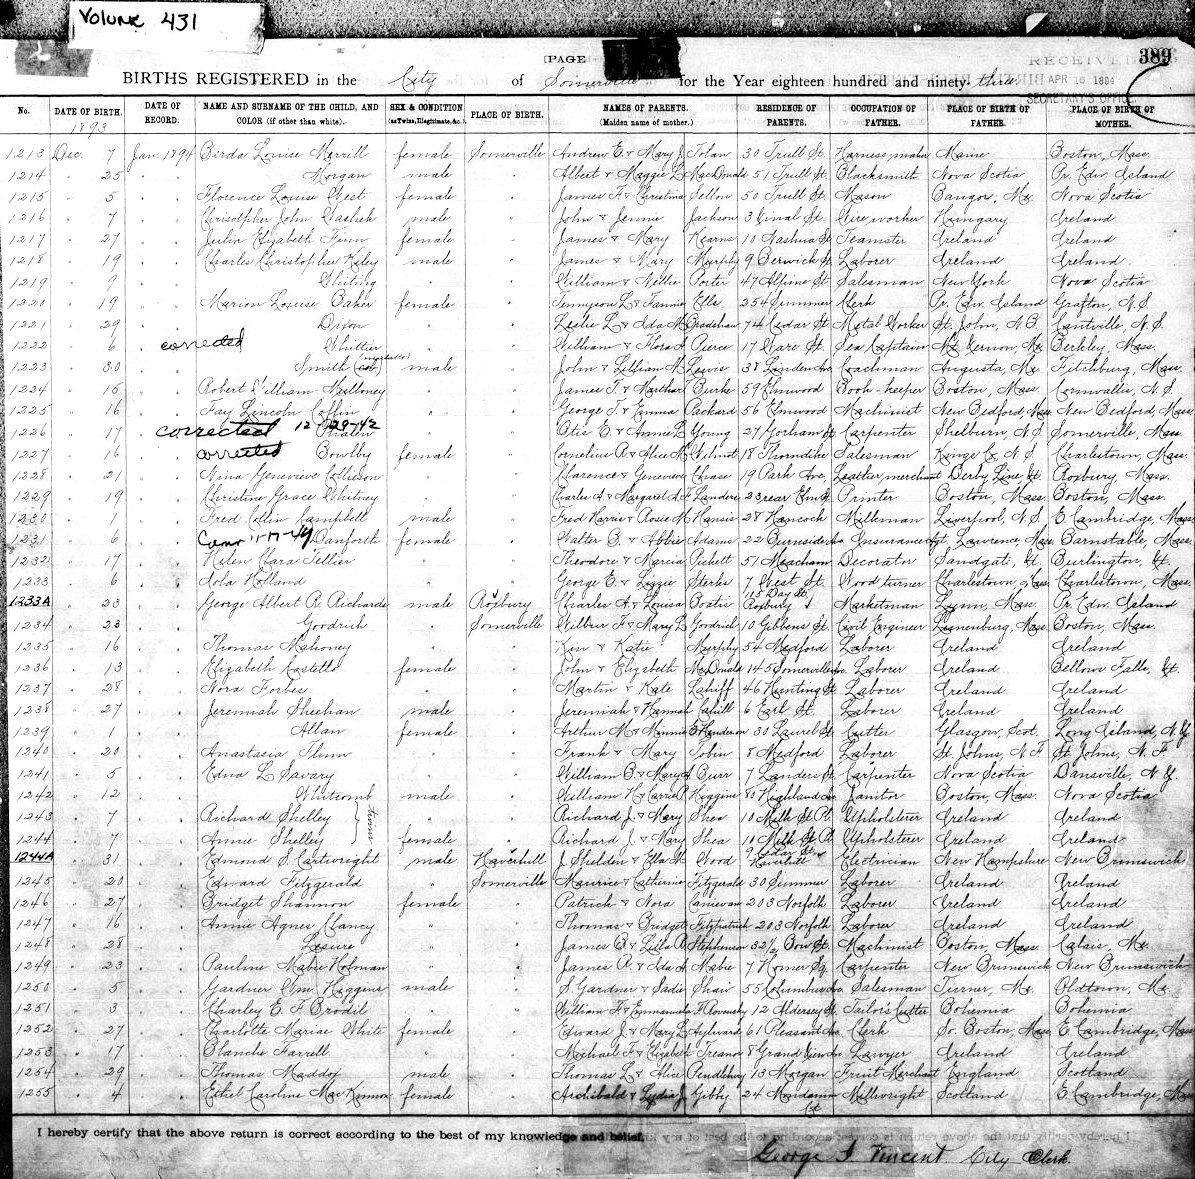 Volume 431
[PAGE
389
RECEIVED
APR 16 1894
SECRETARY'S OFFICE
BIRTHS REGISTERED in the City of Somerville for the Year eighteen hundred and ninety-three
No. DATE OF BIRTH. DATE OF RECORD. NAME AND SURNAME OF THE CHILD, AND COLOR (if other than white). SEX & CONDITION (as Twins, Illegitimate, &c.). PLACE OF BIRTH. NAMES OF PARENTS. (Maiden name of mother.) RESIDENCE OF PARENTS. OCCUPATION OF FATHER. PLACE OF BIRTH OF FATHER. PLACE OF BIRTH OF MOTHER.
1893
1213 Dec. 7 Jan. 1894 Birda Louise Merrill female Somerville Andrew E. & Mary J. Tolan 30 Trull St. Harness maker Maine Boston, Mass.
1214 " 25 . . Morgan male " Albert & Maggie L. MacDonald 51 Trull St. Blacksmith Nova Scotia Pr. Edw. Island
1215 " 5 . . Florence Louise West female " James F. & Christina Sellon 50 Trull St. Mason Bangor, Me. Nova Scotia
1216 " 7 . . John male " John & Jennie Jackson 3 St. Wire worker Hungary Ireland
1217 " 27 . . Julia Elizabeth Finn female " James & Mary Kearns 10 Nashua St. Teamster Ireland Ireland
1218 " 19 . . Charles Christopher Kiley male " James & Mary Murphy 9 Berwick St. Laborer Ireland Ireland
1219 " 9 . . Whiting " William & Nellie Porter 47 Alpine St. Salesman New York Nova Scotia
1220 " 19 . . Marion Louise Oaker female " Tennyson L. & Fannie Ells 254 Summer Clerk Pr. Edw. Island Grafton, N.S.
1221 " 29 . . Dixon " " Leslie L. & Ada M. Bradshaw 74 Cedar St. Metal Worker St. John, N.B. N.S.
1222 " 6 corrected Whittier " " William & Flora A. Pierce 17 Ware St. Sea Captain Mt. Vernon, Me. Berkley, Mass.
1223 " 30 . . Smith (col.) (mulatto) male " John & Lillian M. Lewis 38 Linden Ave. Coachman Augusta, Me. Fitchburg, Mass.
1224 " 15 . . Robert William Mulloney " " James T. & Martha Burke 59 Elmwood Book-keeper Boston, Mass. Cornwallis, N.S.
1225 " 16 . . Fay Lincoln Coffin " " George T. & Emma Packard 56 Elmwood Machinist New Bedford, Mass. New Bedford, Mass.
1226 " 17 corrected 12-29-42 Whalen " " Otis E. & Annie L. Young 27 Gorham St. Carpenter Shelburn, N.S. Somerville, Mass.
1227 " 16 . . corrected Bowlby female " Cornelius A. & Alice M. Wilmot 18 Thorndike Salesman Kings Co. N.S. Charlestown, Mass.
1228 " 21 . . Nina Genevieve Collieson " " Clarence & Genevieve Chase 19 Park Ave. Leather merchant Derby Line Vt. Roxbury, Mass.
1229 " 9 . . Christine Grace Whitney " " Charles A. & Margaret A. Landers 23 rear Elm St. Printer Boston, Mass. Boston, Mass.
1230 " 1 . . Fred Collin Campbell male " Fred Harris & Rosie M. 28 Hancock Milkman Liverpool, N.S. E. Cambridge, Mass.
1231 " 6 . . 11-17-49 Danforth female " Walter B. & Abbie Adams 22 Burnside Ave. Insurance Agt. Lawrence, Mass. Barnstable, Mass.
1232 " 17 . . Helen Clara Tellier " " Theodore & Marcia Pickett 51 Meacham Decorator Sandgate, Vt. Burlington, Vt.
1233 " 6 . . Lola Holland " " George E. & Lizzie Sterks 7 West St. Wood turner Charlestown, Mass. Charlestown, Mass.
1233A " 23 . . George Albert R. Richards male Roxbury Charles A. & Louisa 115 Day St. Roxbury Marketman Lynn, Mass. Pr. Edw. Island
1234 " 23 . . Goodrich " Somerville Wilbur F. & Mary L. Goodrich 10 Gibbens St. Civil Engineer Lunenburg, Mass. Boston, Mass.
1235 " 16 . . Thomas Mahoney " " & Katie Murphy 54 Medford Laborer Ireland Ireland
1236 " 13 . . Elizabeth Costello female " John & Elizabeth McDonald 145 Somerville Ave. Laborer Ireland Bellows Falls, Vt.
1237 " 28 . . Nora Forbes " " Martin & Kate Lahiff 46 Hunting St. Laborer Ireland Ireland
1238 " 27 . . Jeremiah Sheehan male " Jeremiah & Hannah Cahill 6 Earl St. Laborer Ireland Ireland
1239 " 1 . . Allan female " Arthur M. & Minnie E. Henderson 30 Laurel St. Cutter Glasgow, Scot. Long Island, N.Y.
1240 " 20 . . Anastasia Flinn " " Frank & Mary Tobin 8 Medford Laborer St. Johns, N.F. St. Johns, N.F.
1241 " 5 . . Edna L. Savary " " William B. & Mary A. Burr 7 Landers St. Carpenter Nova Scotia Dansville, N.Y.
1242 " 12 . . Whitcomb male " William H. & Carrie P. Higgins 80 Highland Ave. Janitor Boston, Mass. Nova Scotia
1243 " 7 . . Richard Shelley } Twins " " Richard J. & Mary Shea 10 Milk St. Pl. Upholsterer Ireland Ireland
1244 " 7 . . Annie Shelley female " Richard J. & Mary Shea 10 Milk St. Pl. Upholsterer Ireland Ireland
1244A " 31 . . Edmond S. Cartwright male Haverhill J. Shelden & Ella M. Wood 9 Cedar St. Haverhill Electrician New Hampshire New Brunswick
1245 " 20 . . Edward Fitzgerald " Somerville Maurice & Catherine Fitzgerald 30 Summer Laborer Ireland Ireland
1246 " 27 . . Bridget Shannon female " Patrick & Nora 203 Norfolk Laborer Ireland Ireland
1247 " 16 . . Annie Agnes Clancy " " Thomas & Bridget Fitzpatrick 203 Norfolk Laborer Ireland Ireland
1248 " 28 . . Lesure " " James E. & Lilla A. Stephenson 32½ Bow St. Machinist Boston, Mass. Calais, Me.
1249 " 23 . . Pauline Mabie Hofman " " James A. & Ida A. Mabie 7 Homer Sq. Carpenter New Brunswick New Brunswick
1250 " 5 . . Gardner Wm. Higgens male " S. Gardner & Sadie Shaw 55 Columbus Ave. Salesman Turner, Me. Oldtown, Me.
1251 " 3 . . Charley E. F. Brodil " " William F. & Emmanuela F. 12 Aldersey St. Tailor's Cutter Bohemia Bohemia
1252 " 27 . . Charlotte Mariae White female " Edward J. & Mary L. Aylward 61 Pleasant Ave. Clerk So. Boston, Mass. E. Cambridge, Mass.
1253 " 17 . . Blanche Farrell " " Michael F. & Elizabeth Treanor 8 Grand View Ave. Lawyer Ireland Ireland
1254 " 29 . . Thomas Maddox male " Thomas L. & Alice Pendlebury 13 Morgan Fruit Merchant England Scotland
1255 " 4 . . Ethel Caroline MacKinnon female " Archibald & Lydia J. Gibby 24 Mondamin Ct. Millwright Scotland E. Cambridge, Mass.
I hereby certify that the above return is correct according to the best of my knowledge and belief.
George I. Vincent City Clerk.